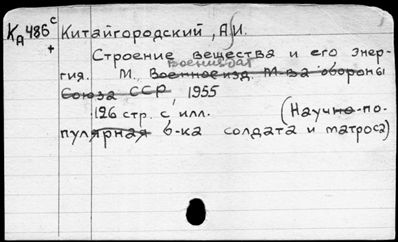 КА 486 с Китайгородский, А.И.
+ Строение вещества и его энер-
Воениздат
гия. М., Военное изд. М-ва обороны
Союза ССР, 1955
126 стр. с илл. (Научно-по-
пулярная б-ка солдата и матроса)